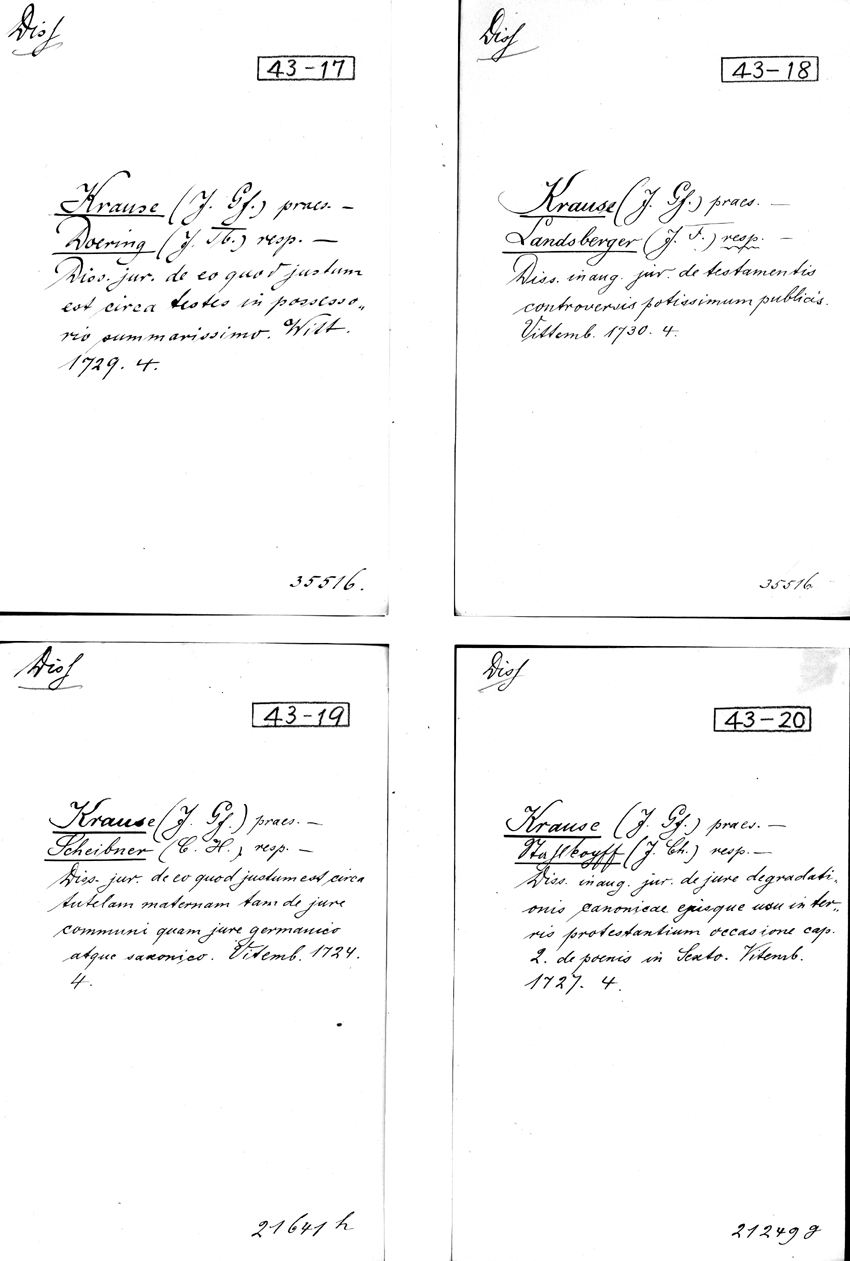 Diss
43-17
Krause (J. Gf.) praes. —
Doering (J. Th.) resp. —
Diss. jur. de eo quod justum
est circa testes in possesso„
rio summarissimo. Witt.
1729. 4.
35516.
Diss
43-18
Krause (J. Gf.) praes. —
Landsberger (J. F.) resp. —
Diss. inaug. jur. de testamentis
controversis potissimum publicis.
Vittemb. 1730. 4.
35516
Diss
43-19
Krause (J. Gf.) praes. —
Scheibner (C. H.) resp. —
Diss. jur. de eo quod justum est circa
tutelam maternam tam de jure
communi quam jure germanico
atque saxonico. Vitemb. 1724.
4.
21641 h
Diss
43-20
Krause (J. Gf.) praes. —
Stahlkopff (J. Ch.) resp. —
Diss. inaug. jur. de jure degradati„
onis canonicae ejusque usu in ter„
ris protestantium occasione cap.
2. de poenis in Sexto. Vitemb.
1727. 4.
21249 g